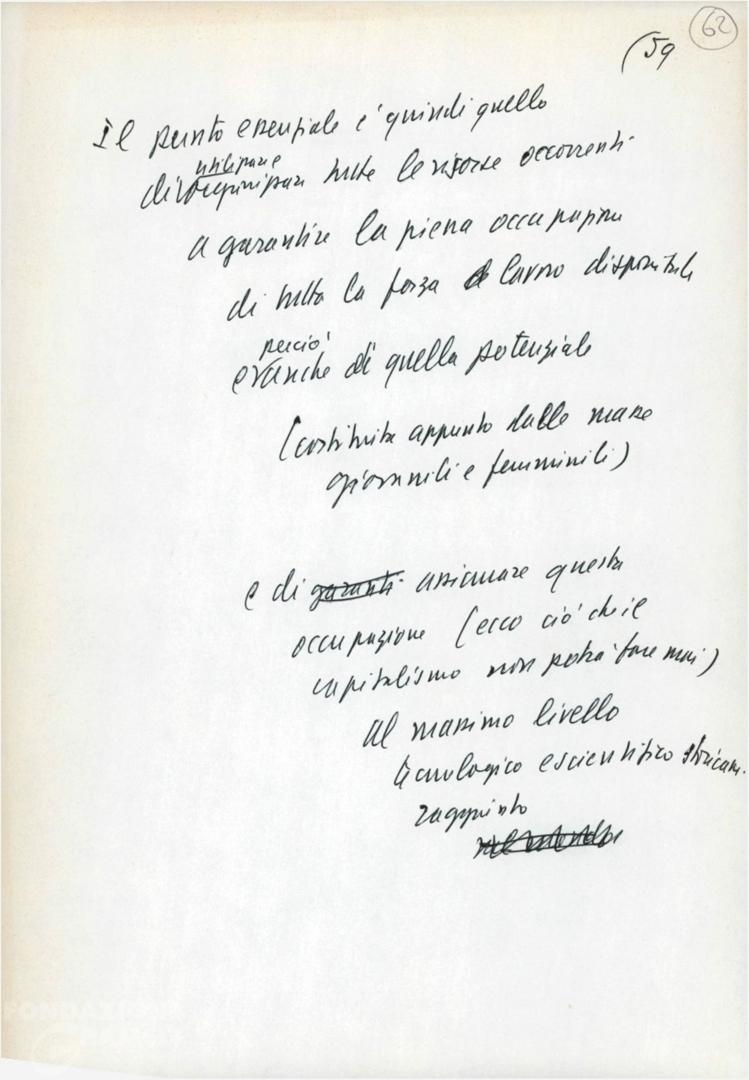 62
(59
Il punto essenziale è quindi quello
utilizzare
di tutte le risorse occorrenti
a garantire la piena occupazione
di tutta la forza di lavoro disponibile
perciò
e anche di quella potenziale
(costituita appunto dalle masse
giovanili e femminili)
e di garanti assicurare questa
occupazione (ecco ciò che il
capitalismo non potrà fare mai)
al massimo livello
tecnologico e scientifico storicam.
raggiunto
FONDAZIONE